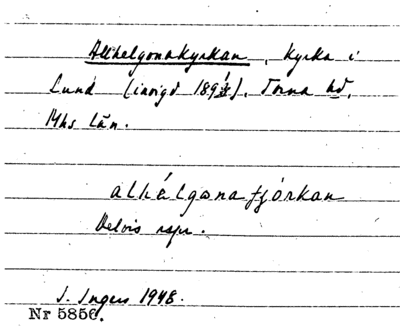 Allhelgonakyrkan, kyrka i
Lund (invigd 1891), Torna hd,
Mhs län.
alhálgona kjórkan
Delvis rspr.
I. Ingers 1948.
Nr 5856.